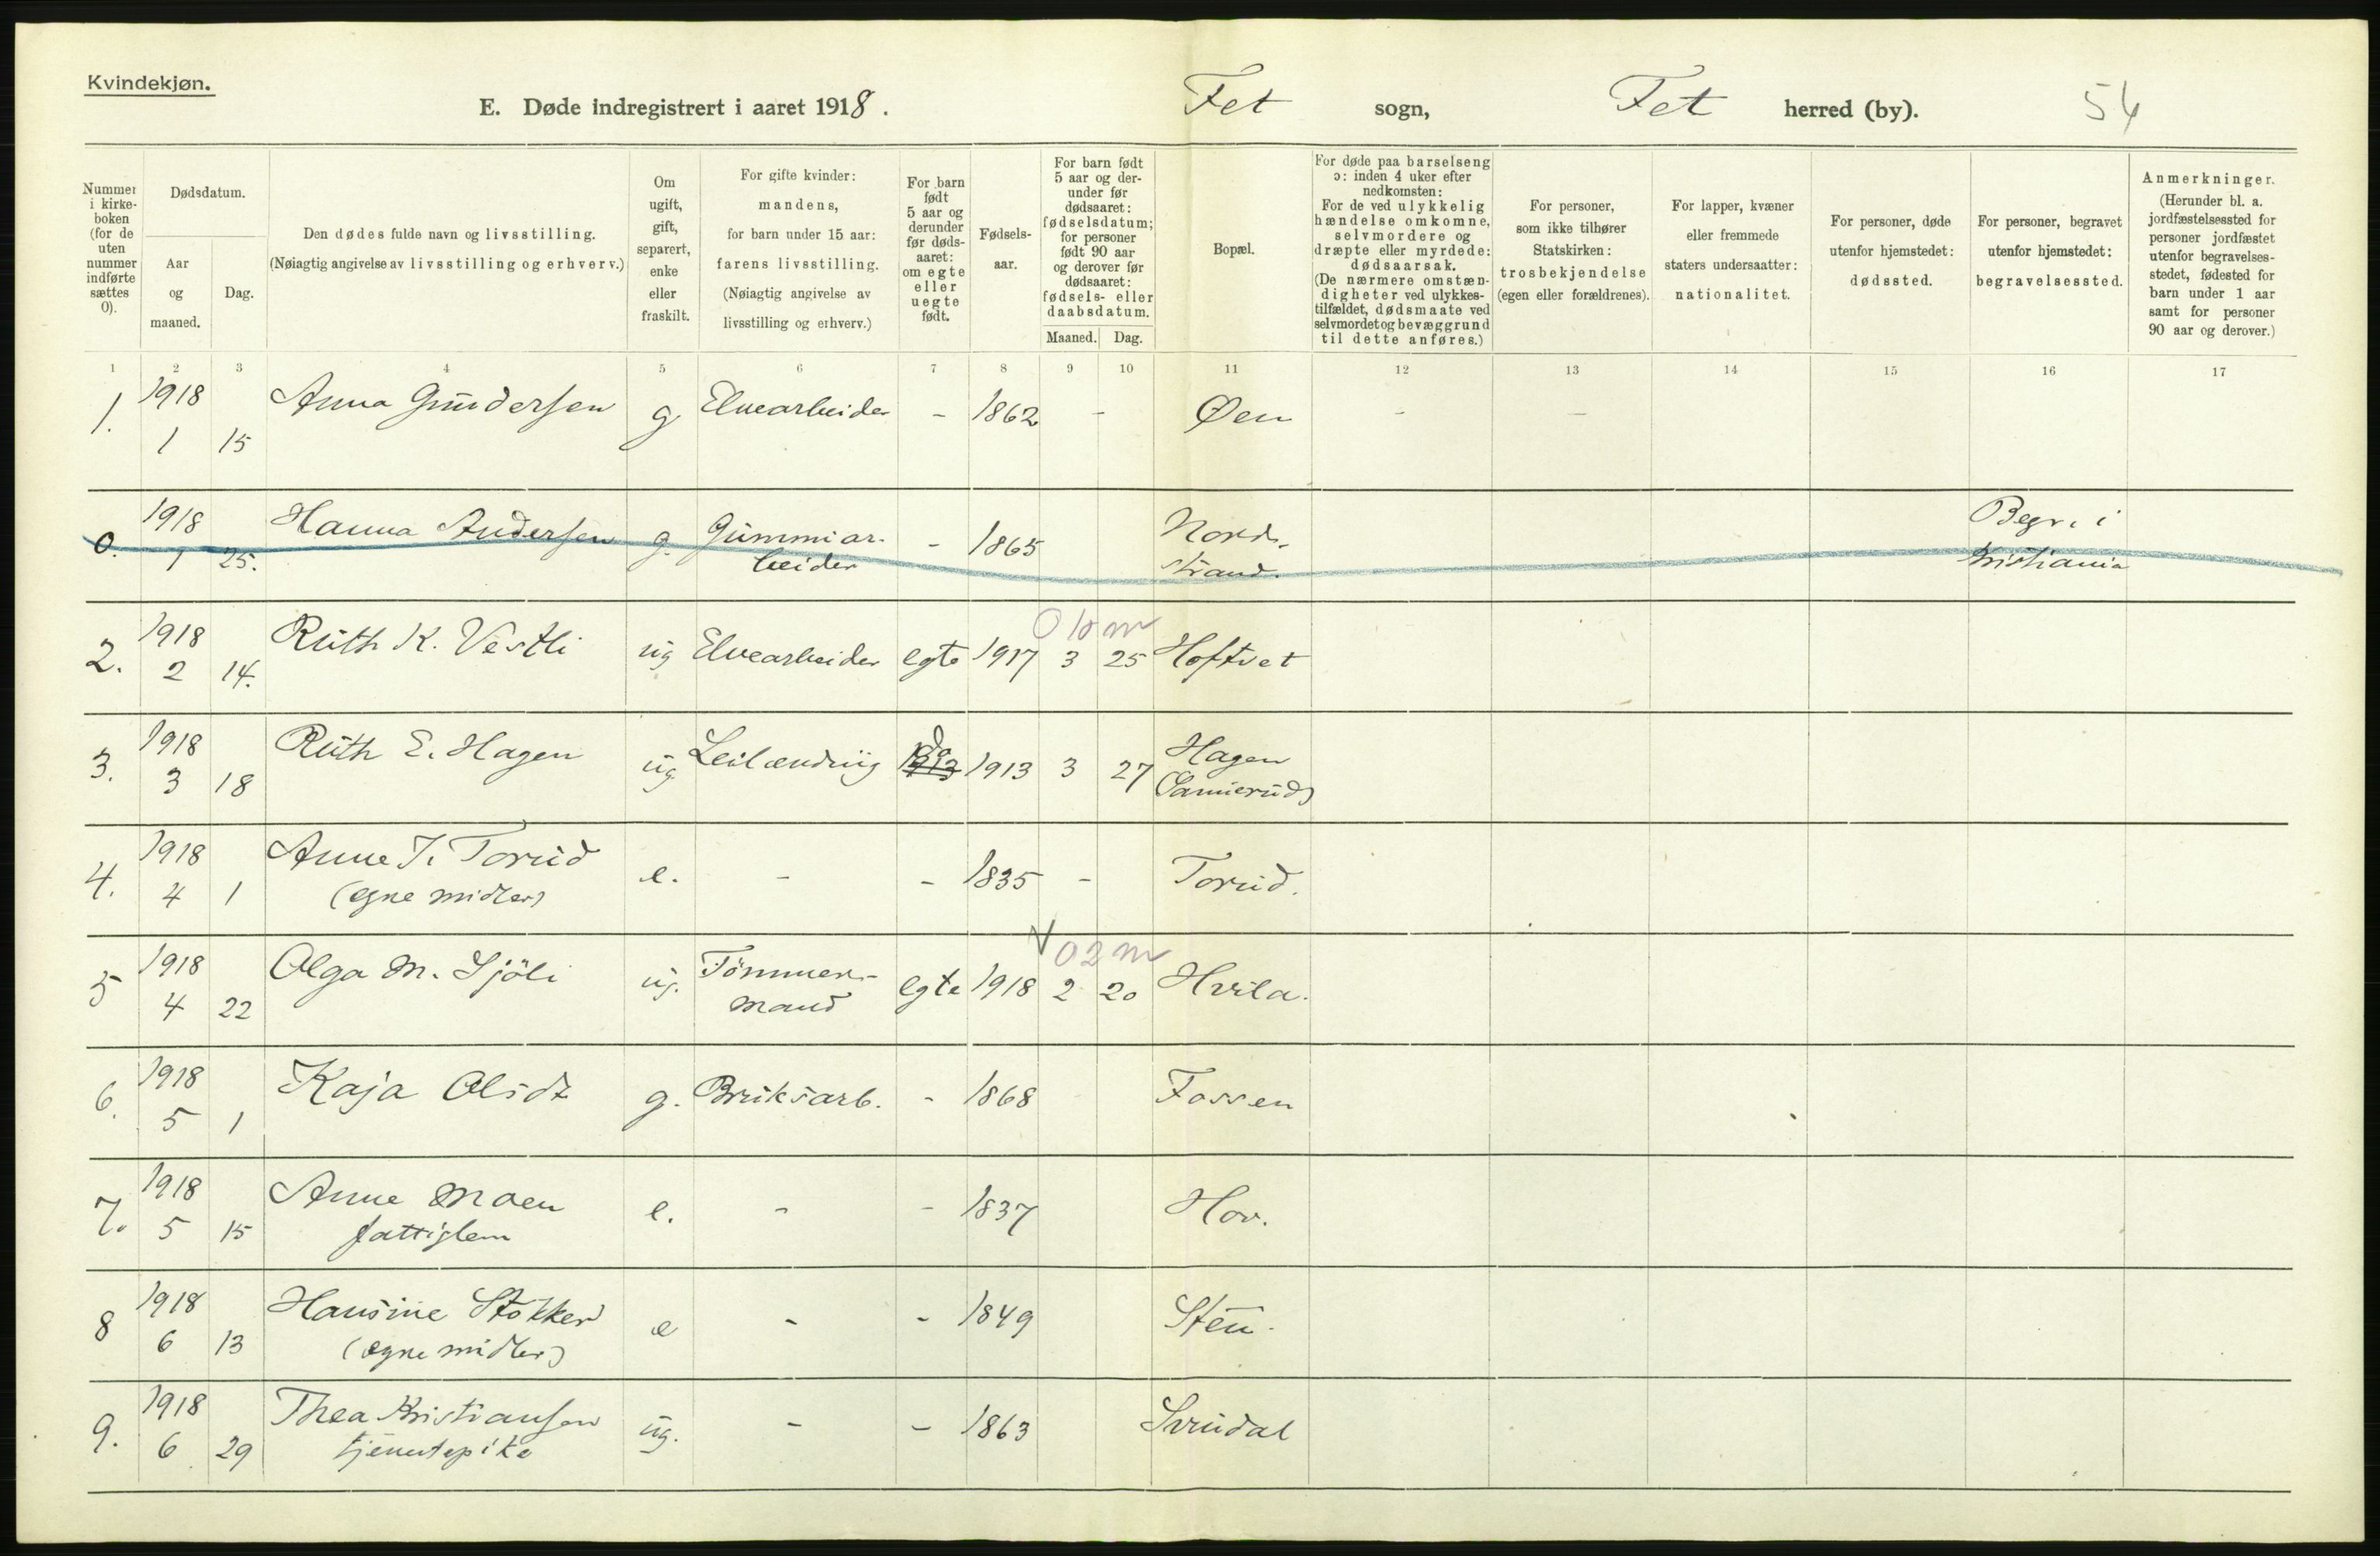 Kvindekjøn.
E. Døde indregistrert i aaret 1918. Fet sogn, Fet herred (by). 54
Nummer i kirkeboken (for de uten nummer indførte sættes 0).
Dødsdatum.
Aar og maaned.
Dag.
Den dødes fulde navn og livsstilling.
(Nøiagtig angivelse av livsstilling og erhverv.)
Om ugift, gift, separert, enke eller fraskilt.
For gifte kvinder: mandens, for barn under 15 aar: farens livsstilling. (Nøiagtig angivelse av livsstilling og erhverv.)
For barn født 5 aar og derunder før dødsaaret: om egte eller uegte født.
Fødselsaar.
For barn født 5 aar og derunder før dødsaaret: fødselsdatum; for personer født 90 aar og derover før dødsaaret: fødsels- eller daabsdatum.
Maaned. Dag.
Bopæl.
For døde paa barselseng ɔ: inden 4 uker efter nedkomsten: For de ved ulykkelig hændelse omkomne, selvmordere og dræpte eller myrdede: dødsaarsak. (De nærmere omstændigheter ved ulykkestilfældet, dødsmaate ved selvmordet og bevæggrund til dette anføres.)
For personer, som ikke tilhører Statskirken: trosbekjendelse (egen eller forældrenes).
For lapper, kvæner eller fremmede staters undersaatter: nationalitet.
For personer, døde utenfor hjemstedet: dødssted.
For personer, begravet utenfor hjemstedet: begravelsessted.
Anmerkninger. (Herunder bl. a. jordfæstelsessted for personer jordfæstet utenfor begravelsesstedet, fødested for barn under 1 aar samt for personer 90 aar og derover.)
1 2 3 4 5 6 7 8 9 10 11 12 13 14 15 16 17
1. 1918 1 15 Anna Gundersen g Elvearbeider - 1862 - Øen - -
0. 1918 1 25. Hanna Andersen g. Gummiarbeider - 1865 Nordstrand. Begr. i Kristiania
0 10 m
2. 1918 2 14. Ruth K. Vestli ug Elvearbeider egte 1917 3 25 Hoftvet
3. 1918 3 18 Ruth E. Hagen ug Leilænding 1913 3 27 Hagen
4. 1918 4 1 Anne J. Torud (egne midler) e. - - 1835 - Torud.
0 2 m
5 1918 4 22 Olga M. Sjöli ug. Tömmermand egte 1918 2 20 Hvila.
6. 1918 5 1 Kaja Olsdt g. Bruksarb. - 1868 Fossen
7. 1918 5 15 Anne Moen fattiglem e. - - 1837 Hov.
8 1918 6 13 Hansine Stokker (egne midler) e - - 1849 Sten.
9. 1918 6 29 Thea Kristiansen tjenestepike ug. - - 1863 Svindal